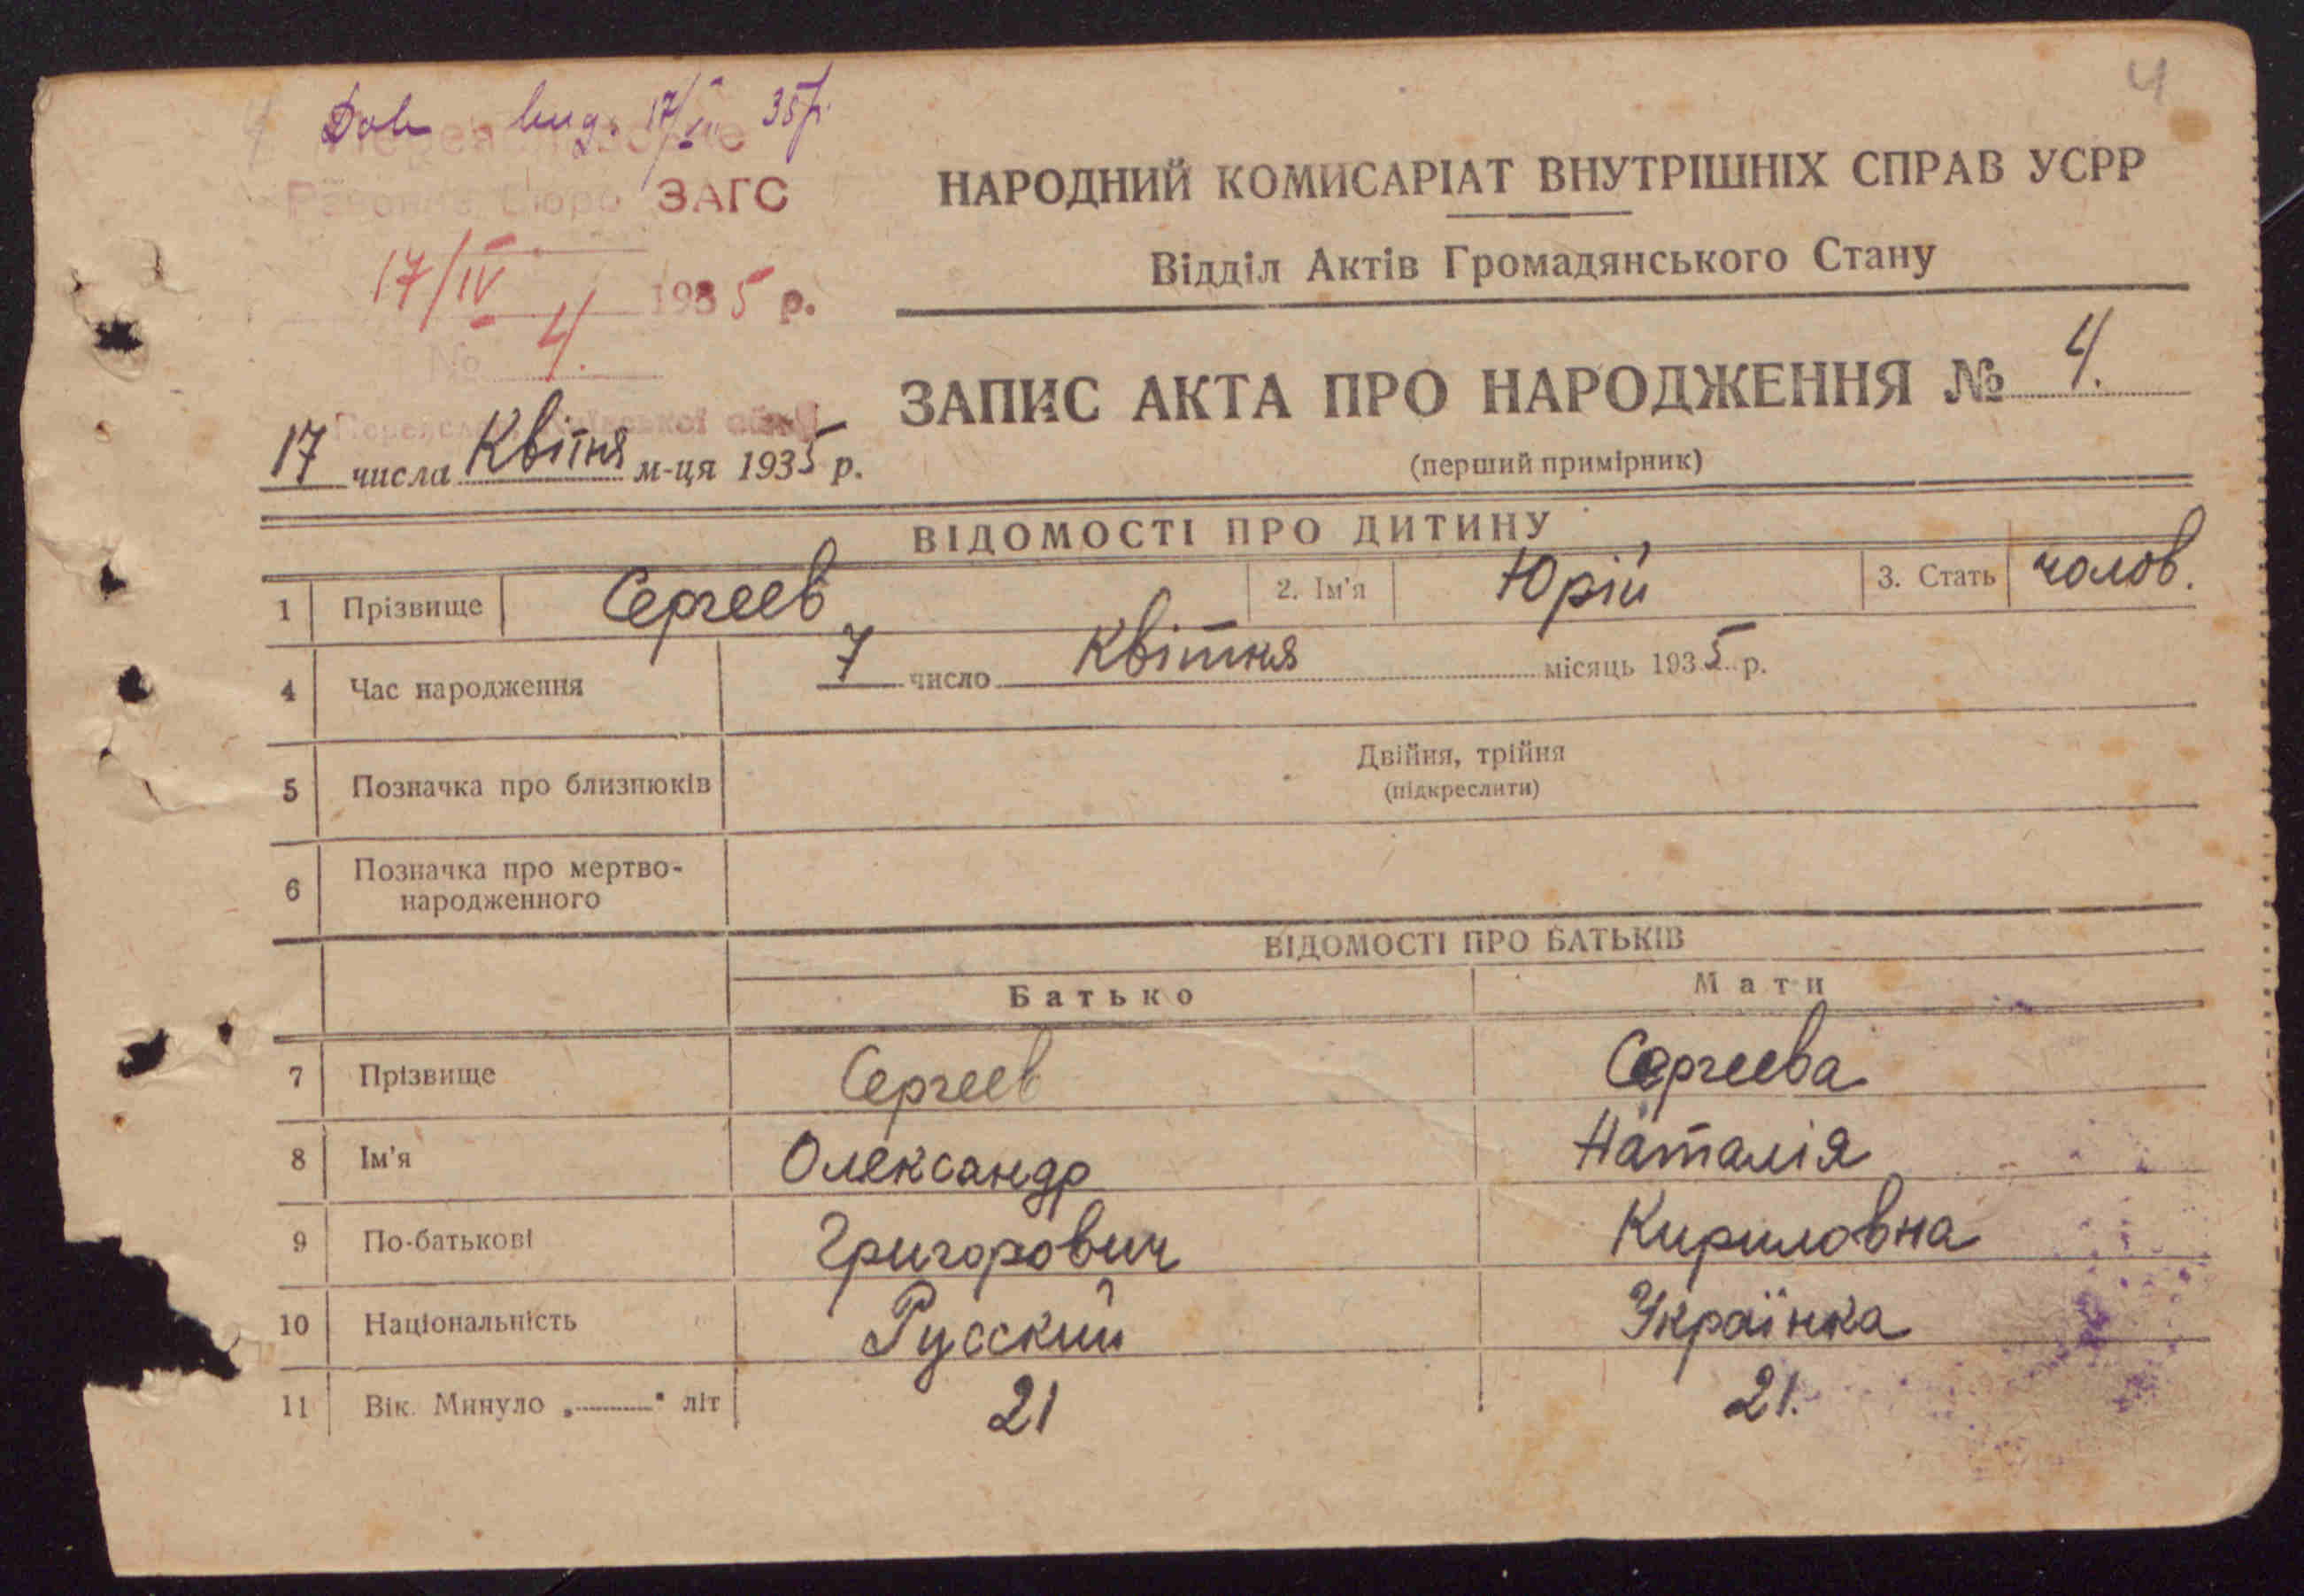 4
Дов. вид. 17/IV 35 р.
Переяславське
Районне Бюро ЗАГС
17/IV 1935 р.
№ 4.
Переяслав, Київської обл.
17 числа Квітня м-ця 1935 р.
НАРОДНИЙ КОМИСАРІАТ ВНУТРІШНІХ СПРАВ УСРР
Відділ Актів Громадянського Стану
ЗАПИС АКТА ПРО НАРОДЖЕННЯ № 4.
(перший примірник)
ВІДОМОСТІ ПРО ДИТИНУ
1 Прізвище Сергеев 2. Ім'я Юрій 3. Стать чолов.
4 Час народження 7 число Квітня місяць 1935 р.
5 Позначка про близнюків Двійня, трійня
(підкреслити)
6 Позначка про мертво-
народженного
ВІДОМОСТІ ПРО БАТЬКІВ
Батько Мати
7 Прізвище Сергеев Сергеева
8 Ім'я Олександр Наталія
9 По-батькові Григорович Кириловна
10 Національність Русский Українка
11 Вік. Минуло „ " літ 21 21.